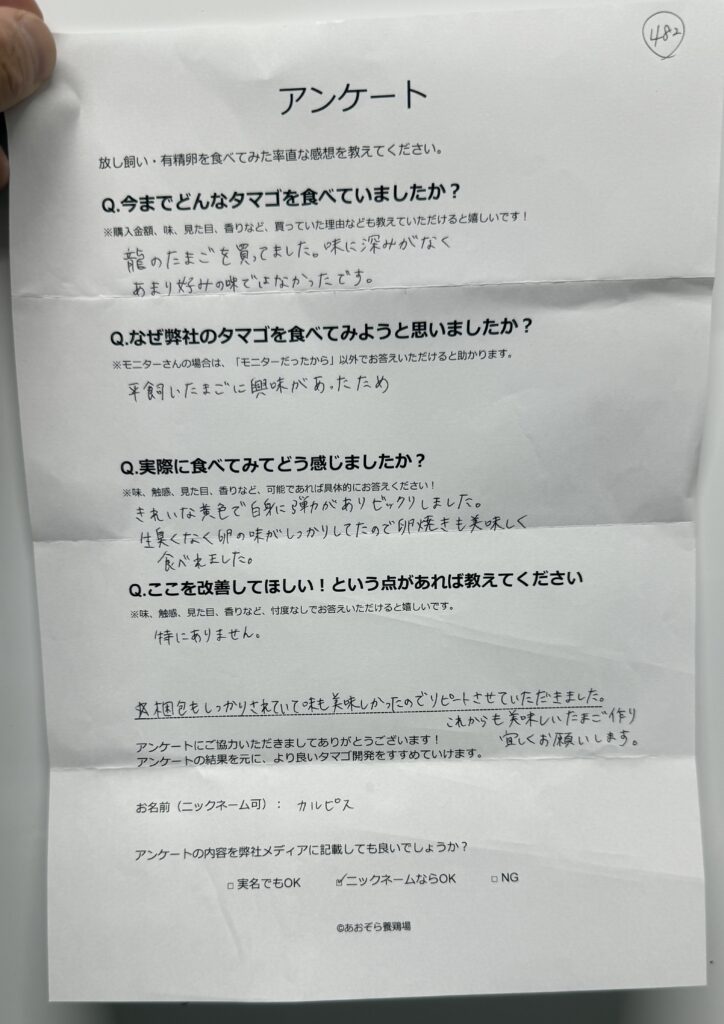 482
アンケート
放し飼い・有精卵を食べてみた率直な感想を教えてください。
Q.今までどんなタマゴを食べていましたか？
※購入金額、味、見た目、香りなど、買っていた理由なども教えていただけると嬉しいです！
龍のたまごを買ってました。味に深みがなく
あまり好みの味ではなかったです。
Q.なぜ弊社のタマゴを食べてみようと思いましたか？
※モニターさんの場合は、「モニターだったから」以外でお答えいただけると助かります。
平飼いたまごに興味があったため
Q.実際に食べてみてどう感じましたか？
※味、触感、見た目、香りなど、可能であれば具体的にお答えください！
きれいな黄色で白身に弾力がありビックリしました。
生臭くなく卵の味がしっかりしてたので卵焼きも美味しく
食べれました。
Q.ここを改善してほしい！という点があれば教えてください
※味、触感、見た目、香りなど、忖度なしでお答えいただけると嬉しいです。
特にありません。
※梱包もしっかりされていて味も美味しかったのでリピートさせていただきました。
これからも美味しいたまご作り
宜しくお願いします。
アンケートにご協力いただきましてありがとうございます！
アンケートの結果を元に、より良いタマゴ開発をすすめていけます。
お名前（ニックネーム可）： カルピス
アンケートの内容を弊社メディアに記載しても良いでしょうか？
□ 実名でもOK ☑ニックネームならOK □ NG
©あおぞら養鶏場